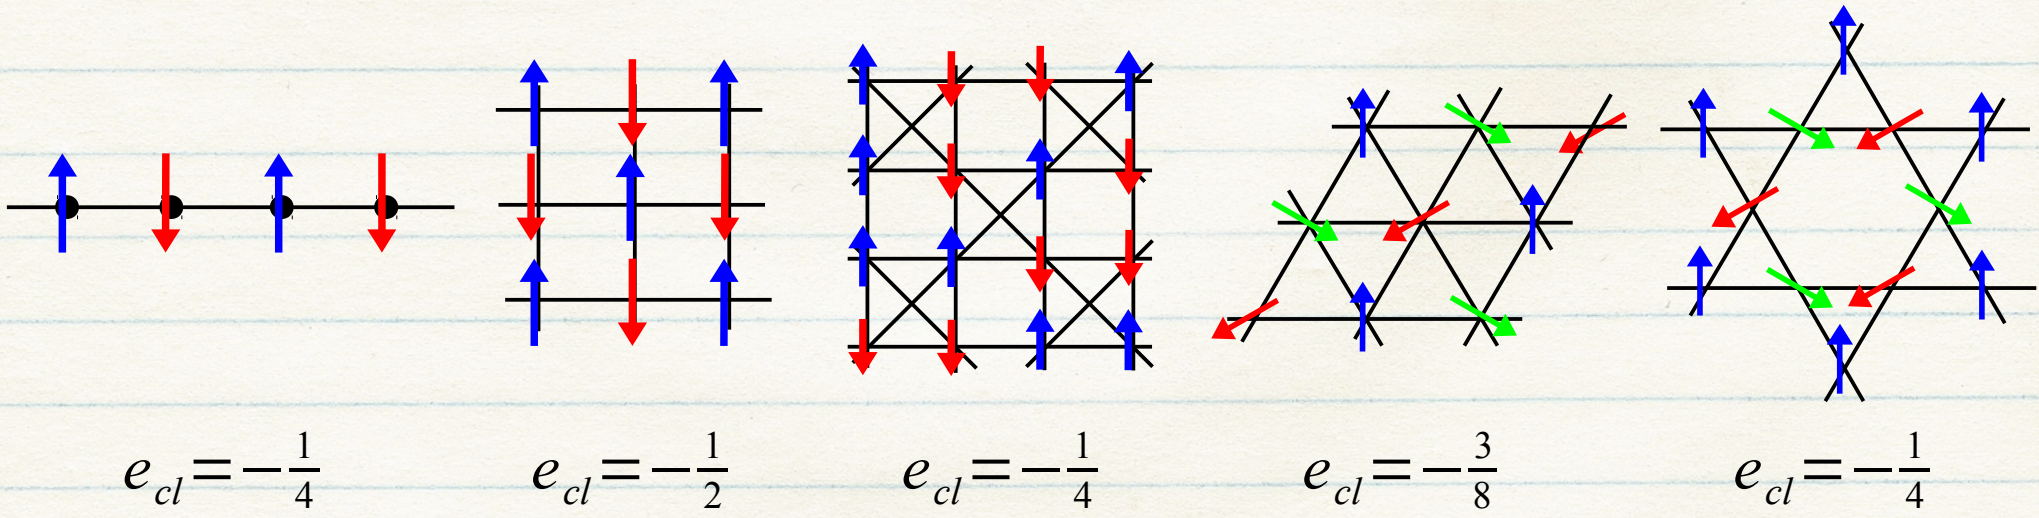 e_{cl} = -\frac{1}{4}
e_{cl} = -\frac{1}{2}
e_{cl} = -\frac{1}{4}
e_{cl} = -\frac{3}{8}
e_{cl} = -\frac{1}{4}